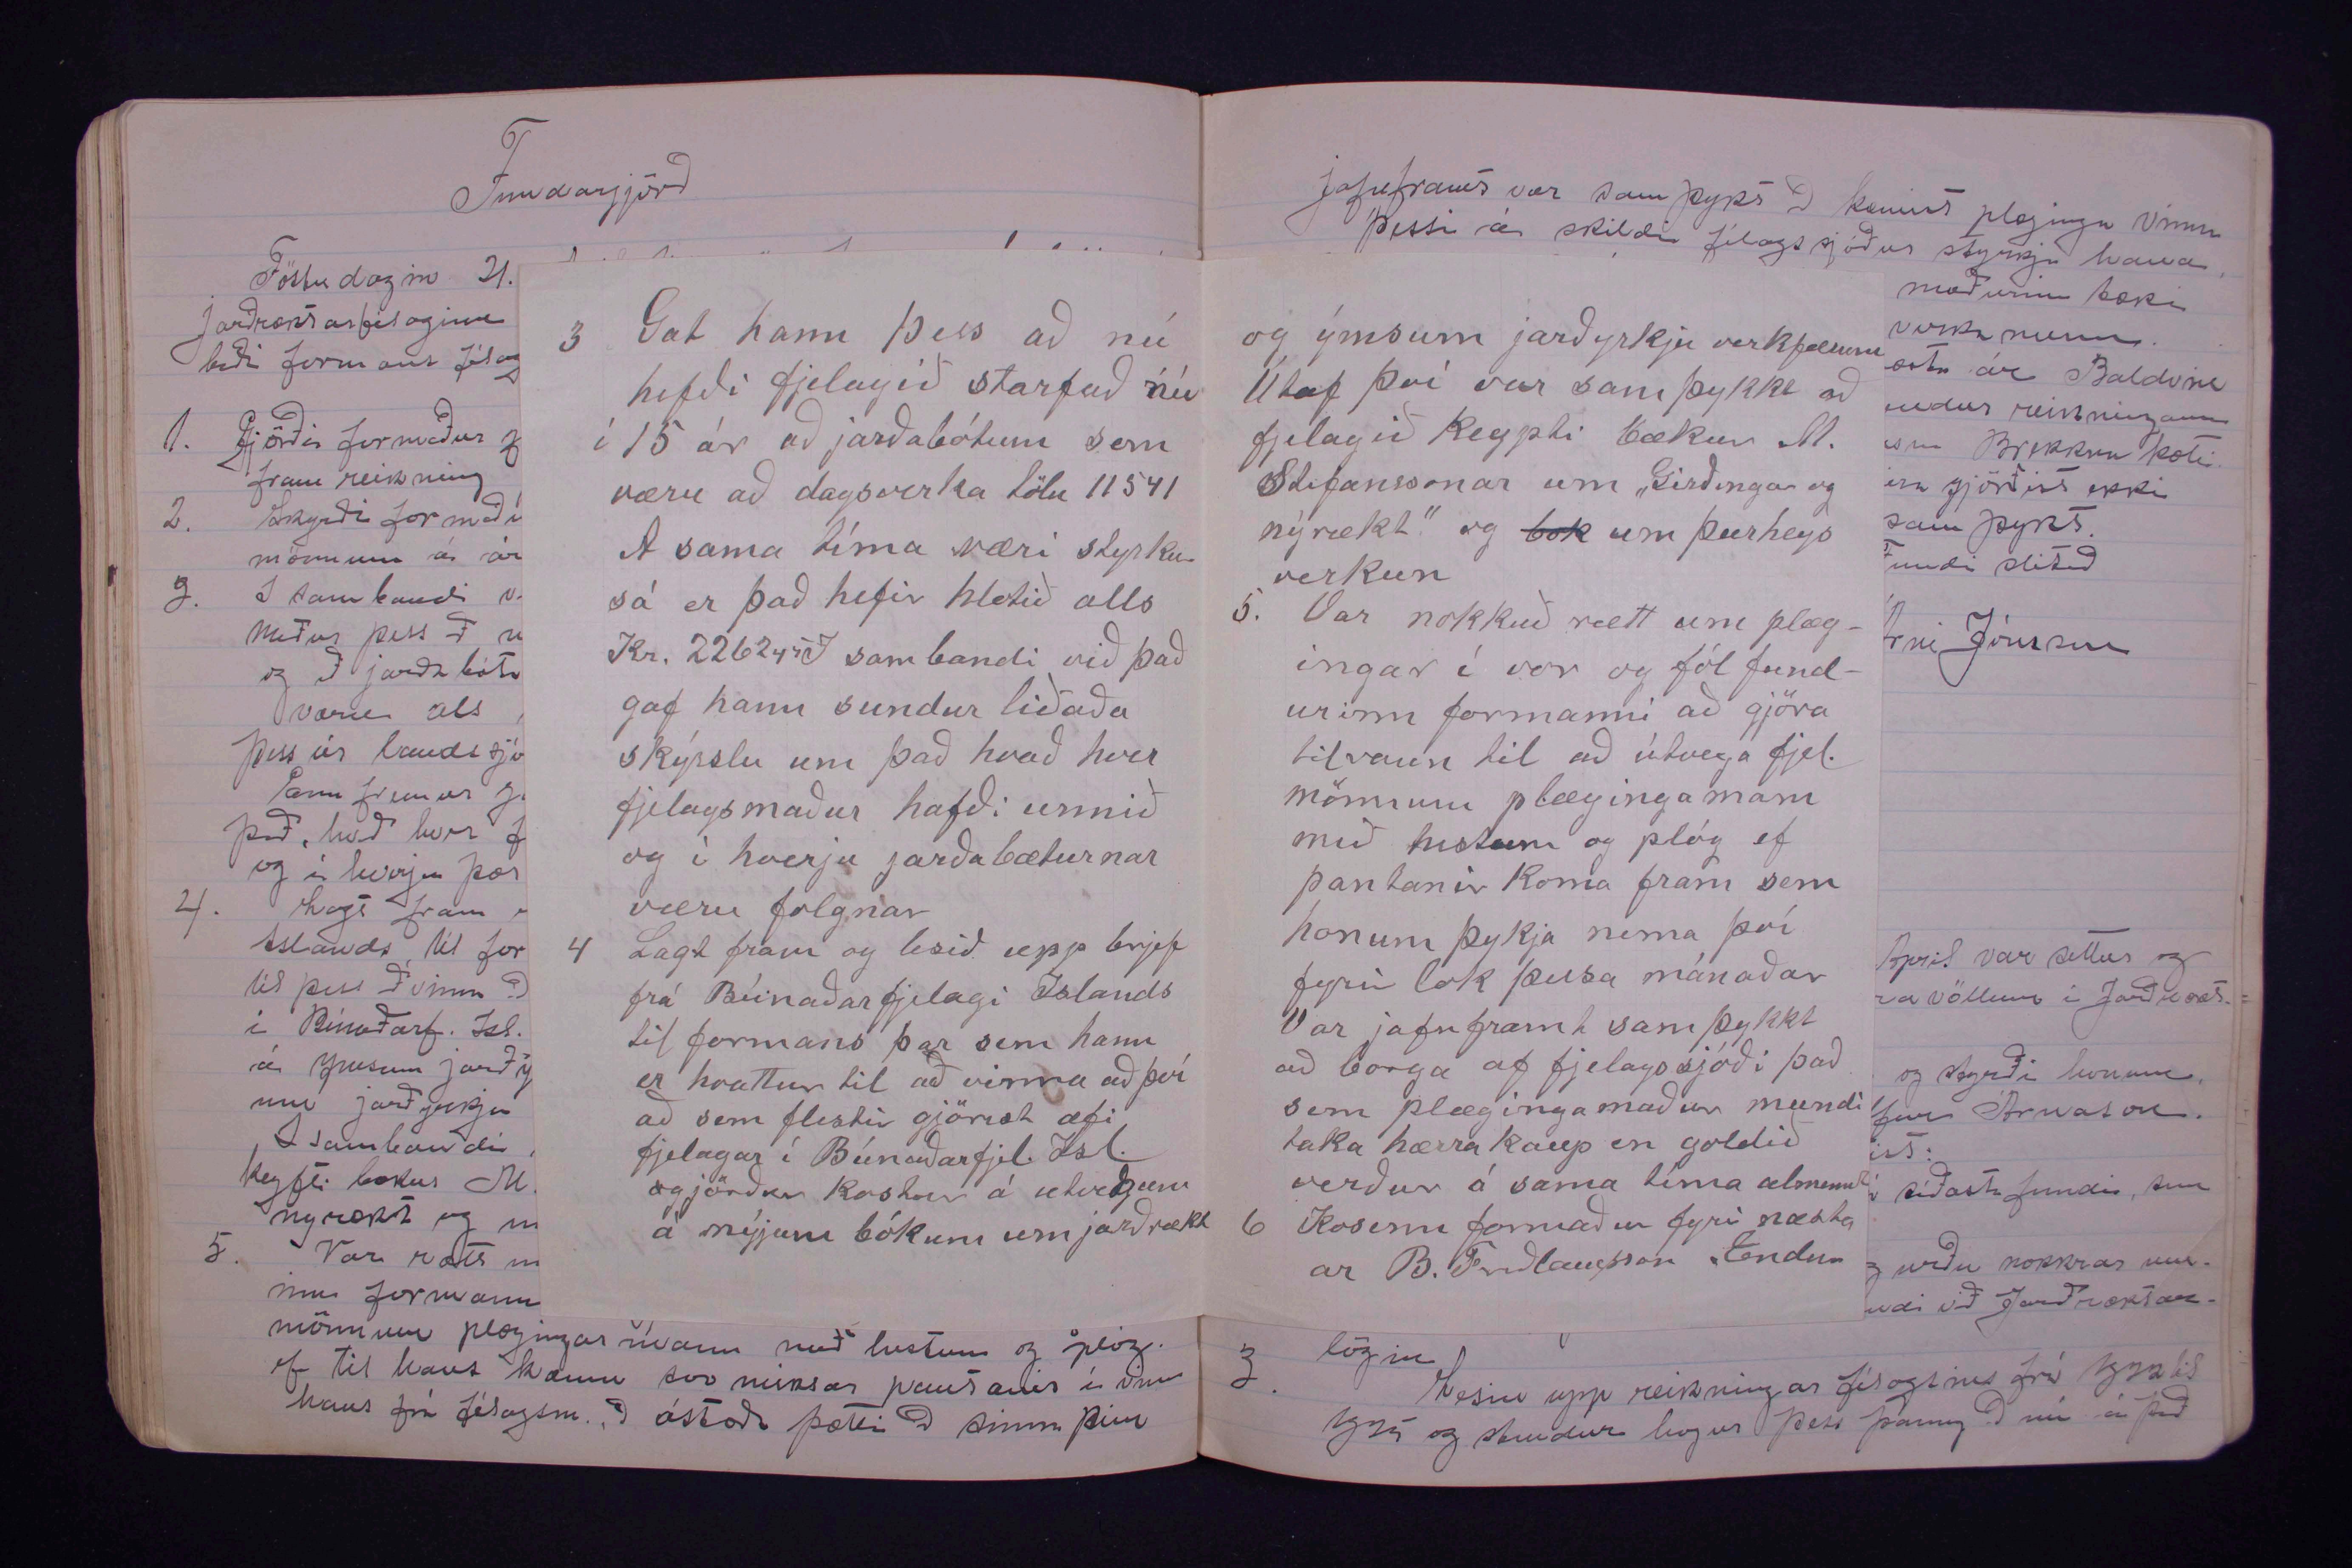 Fundargjörð
Föstudaginn 21.
jarðræktarfélaginu
beði formans félag
1. Gjörði formaður g
fram reikning
2. Skyrði formaðu
mönnum á ár
3. I sambandi v.
maður þess að n
og að jarðabóta
væru als
þess úr landssjó
það, hvað hver f
og í hverju þær
4. Lagt fram
Islands, til for
til þess að vinna að
í Búnaðarf. Isl.
á ymsum jarðy
um jarðyrkju
I sambandi
keyfti bækur M.
nyrækt og
5. Var rætt
inn formann
mönnum plægingarmann með hestum og plóg.
ef til hans kæmu svo miklar pantanir í vinnu
hans frá félagsm. að ástæða þætti að sinna þeim
3 Gat hann þess að nú
hefði fjelagið starfað nú
í 15 ár að jarðabótum sem
væru að dagsverka tölu 11541
A sama tíma væri styrkur
sá er það hefir hlotið alls
Kr. 2262 45 I sambandi við það
gaf hann sundur liðaða
skýrslu um það hvað hver
fjelagsmaður hafði unnið
og í hverju jarðabæturnar
væru folgnar
4 Lagt fram og lesið upp brjef
frá Búnaðarfjelagi Islands
til formans þar sem hann
er hvattur til að vinna að því
að sem flestir gjörist æfi
fjelagar í Búnaðarfjel. Isl.
og jörður kostur á utvegum
á nýjum bókum um jarðrækt
og ýmsum jarðyrkju verkfærum
Útaf því var samþykkt að
fjelagið Keypti bækur M.
Stefanssonar um „Girðingar og
nýrækt" og bok um þurheys
verkun
5. Var nokkuð rætt um plæg-
ingar í vor og fól fund-
urinn formanni að gjöra
tilraun til að útvega fjel.
mönnum plæginga mann
með hestum og plóg ef
pantanir Koma fram sem
honum þykja nema því
fyrir lok þessa mánaðar
Var jafnframt samþykkt
að borga af fjelagssjóði það
sem plægingamaður mundi
taka hærra kaup en goldið
verður á sama tíma almennt
6 Kosinn formaður fyri næsta
ar B. Friðlaugsson Endur
jafnframt var samþykt að kæmist plæginga vinna
þessi á skildi félagssjóður styrkja hana,
maðurinn tæki
verkamenn.
ár Baldvin
endur reikninganna
Brekknakoti
gjörðist ekki
samþykt.
Fundi slitið
Árni Jónsson
April var settur og
völlum í Jarðrækt-
og skyrði honum
Arnason.
síðasta fundi, sem
urðu nokkrar um-
við Jarðræktar-
lögin
3. Lesin upp reikningar félagsins frá
og stendur hagur þess þannig að nú á það